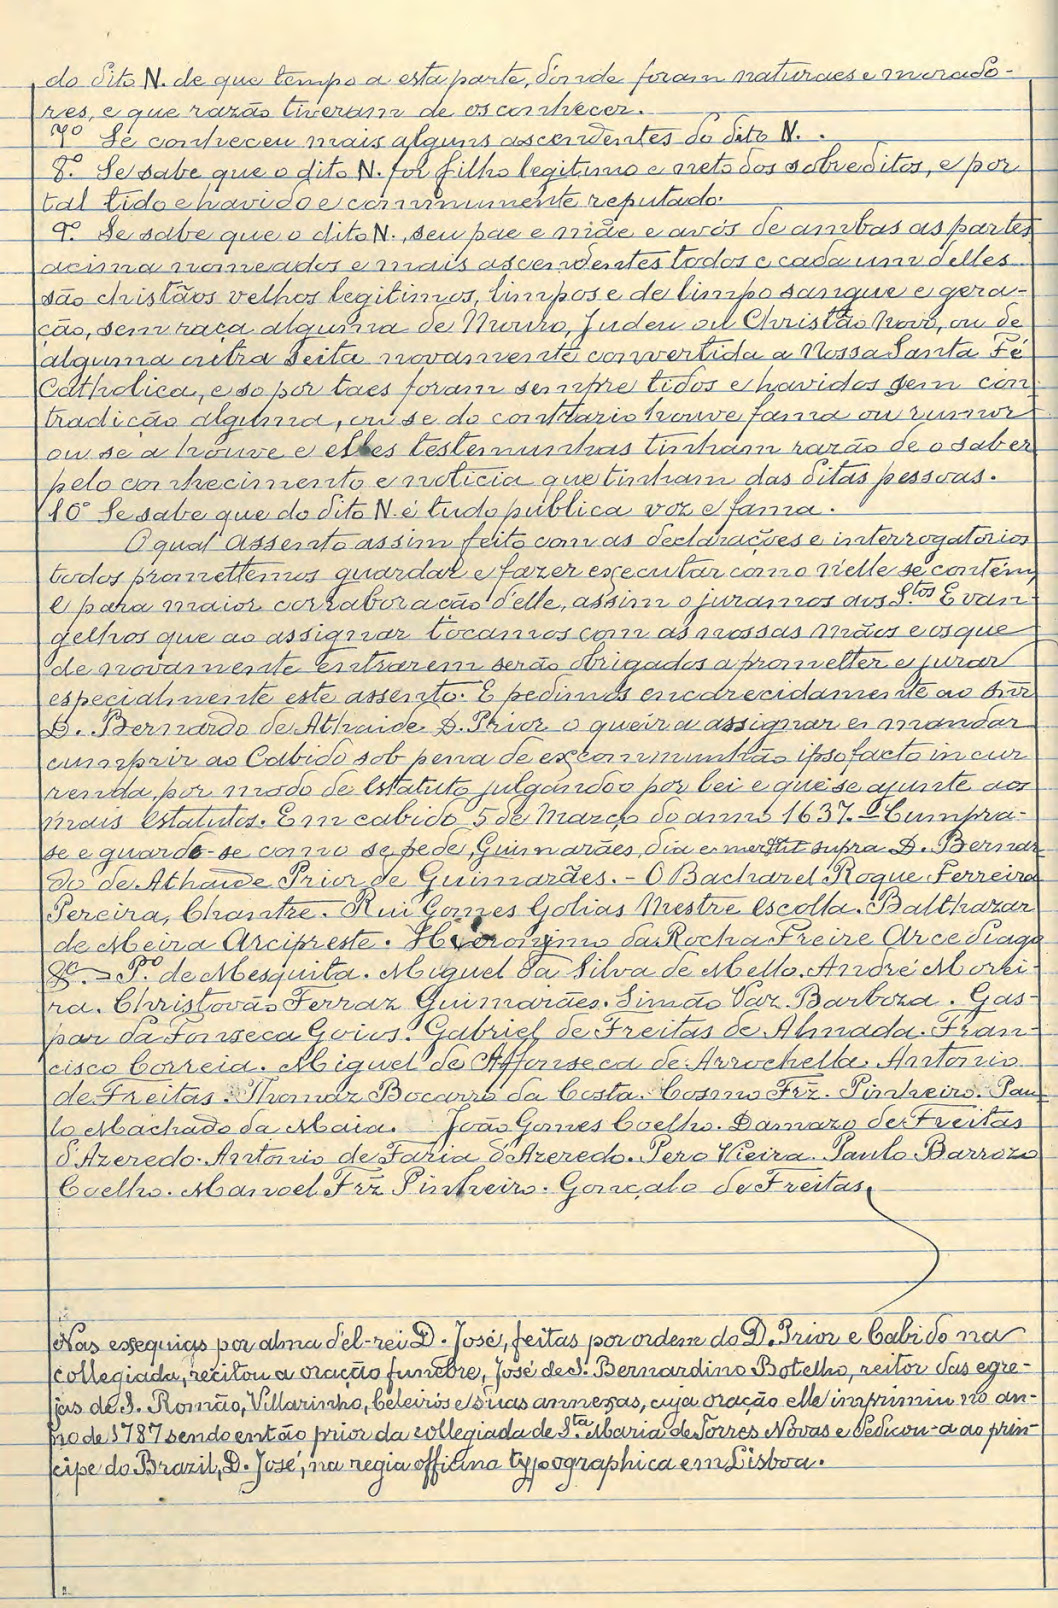 do dito N. de que tempo a esta parte, d'onde foram naturaes e morado-
res, e que razão tiveram de os conhecer.
7º Se conheceu mais alguns ascendentes do dito N. .
8º. Se sabe que o dito N. foi filho legitimo e neto dos sobreditos, e por
tal tido e havido e commumente reputado.
9º. Se sabe que o dito N., seu pae e mãe e avós de ambas as partes
acima nomeados e mais ascendentes todos e cada um delles
são christãos velhos legitimos, limpos e de limpo sangue e gera-
ção, sem raça alguma de Mouro, Judeu ou Christão Novo, ou de
alguma outra seita novamente convertida a Nossa Santa Fé
Catholica, e so por taes foram sempre tidos e havidos sem con
tradição alguma, ou se do contrario houve fama ou rumor
ou se a houve e elles testemunhas tinham razão de o saber
pelo conhecimento e noticia que tinham das ditas pessoas.
10º Se sabe que do dito N. é tudo publica voz e fama.
O qual assento assim feito com as declarações e interrogatorios
todos promettemos guardar e fazer executar como n'elle se contém,
E para maior corraboração d'elle, assim o juramos aos S.tos Evan-
gelhos que ao assignar tocamos com as nossas mãos e os que
de novamente entrarem serão obrigados a prometter e jurar
especialmente este assento. E pedimos encarecidamente ao Snr
D. Bernardo de Athaide D. Prior o queira assignar e mandar
cumprir ao Cabido sob pena de excommunhão ipso facto incur
renda, por modo de Estatuto julgando o por lei e que se ajunte aos
mais Estatutos. Em cabido 5 de Março do anno 1637. = Cumpra-
se e guarde-se como se pede, Guimarães, dia e supra D. Bernar
do de Athaide Prior de Guimarães. - O Bacharel Roque Ferreira
Pereira, Chantre. Rui Gomes Golias Mestre Escolla. Balthazar
de Meira Arcipreste. Hieronymo da Rocha Freire Arcediago
Pº. de Mesquita. Miguel da Silva de Mello. André Morei-
ra. Christovão Ferraz Guimarães. Simão Vaz Barboza. Gas-
par da Fonseca Goios. Gabriel de Freitas de Almada. Fran-
cisco Correia. Miguel de Affonseca de Arrochella. Antonio
de Freitas. Thomaz Bocarro da Costa. Cosmo Frz. Pinheiro. Pau-
lo Machado da Maia. João Gomes Coelho. Damazo de Freitas
d'Azeredo. Antonio de Faria d'Azeredo. Pero Vieira. Paulo Barrozo
Coelho. Manoel Frz Pinheiro. Gonçalo de Freitas.
Nas exequias por alma d'el-rei D. José, feitas por ordem do D. Prior e Cabido na
collegiada, recitou a oração funebre, José de S. Bernardino Botelho, reitor das egre-
jas de S. Romão, Villarinho, Celeirós e suas annexas, cuja oração elle imprimiu no an-
no de 1787 sendo então prior da collegiada de S.ta Maria de Torres Novas e dedicou-a ao prin-
cipe do Brazil, D. José, na regia officina typographica em Lisboa.